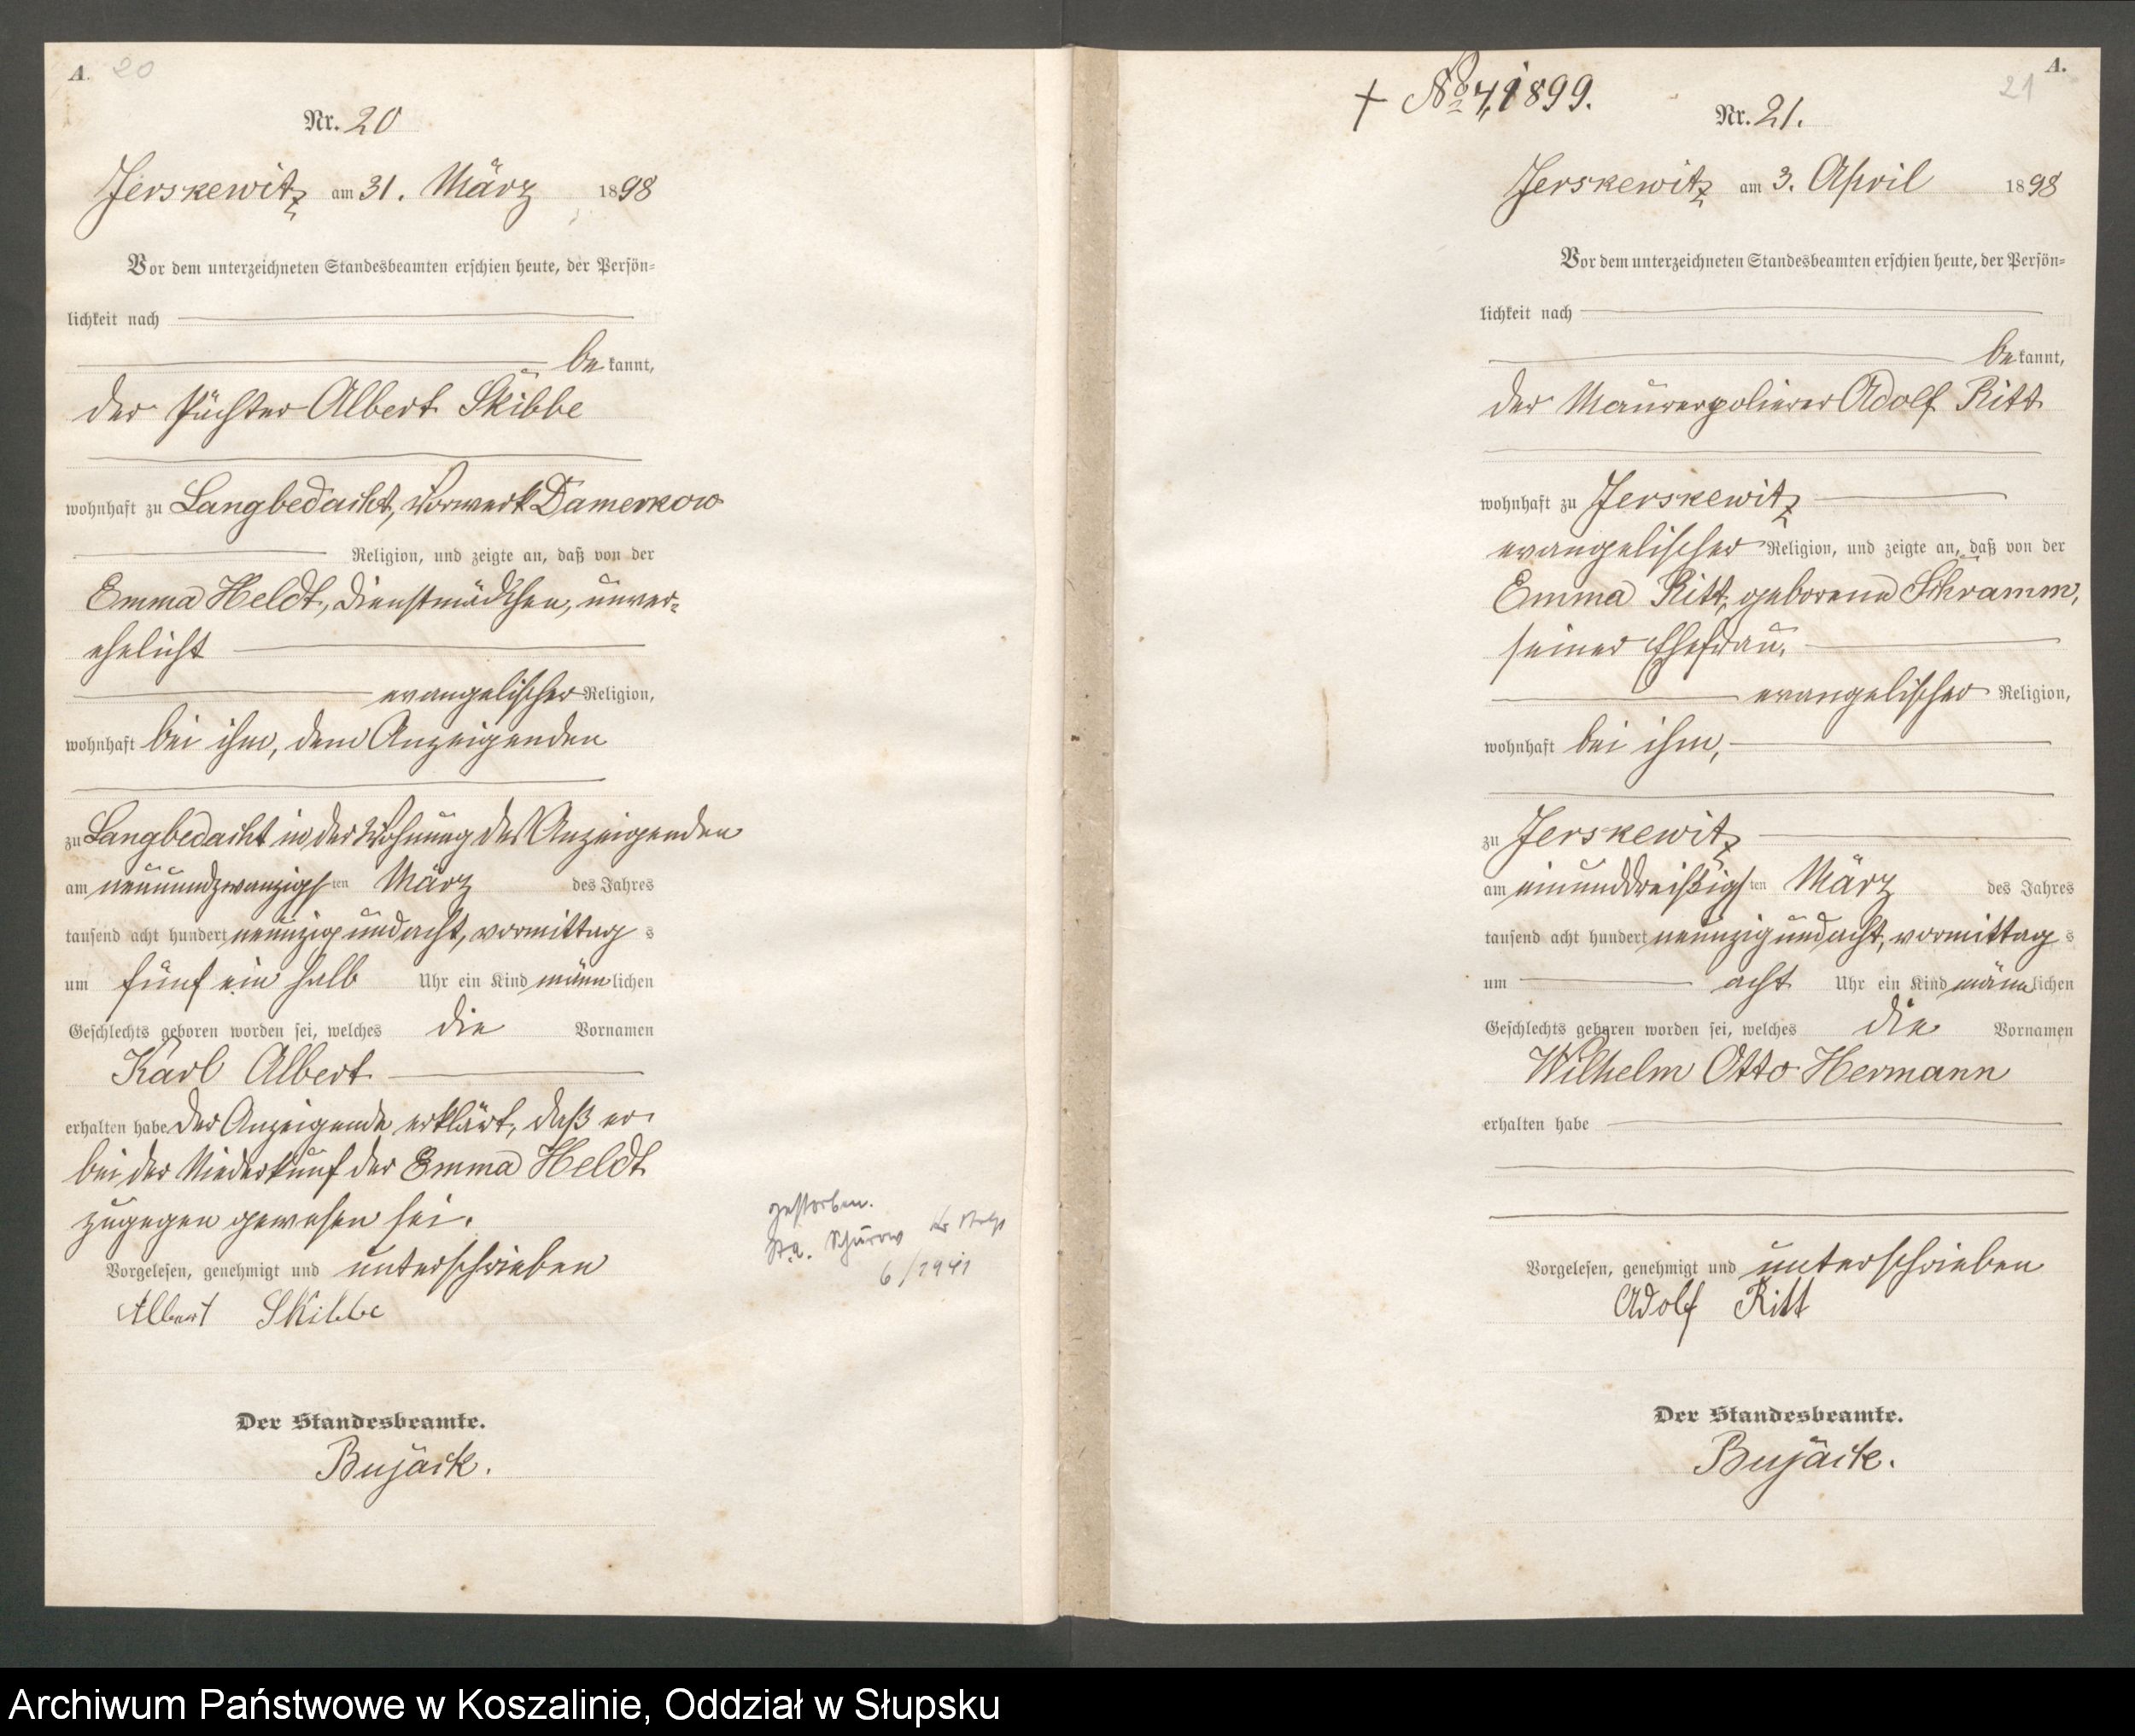 A. 20
Nr. 20
Jerskewitz am 31. März 1898
Vor dem unterzeichneten Standesbeamten erschien heute, der Persön-
lichkeit nach
bekannt,
der Püchter Albert Skibbe
wohnhaft zu Langbedacht, Vorwerk Damerkow
Religion, und zeigte an, daß von der
Emma Heldt, Dienstmädchen, unver-
ehelicht
evangelischer Religion,
wohnhaft bei ihm, dem Anzeigenden
zu Langbedacht in der Wohnung des Anzeigenden
am neunundzwanzigsten März des Jahres
tausend acht hundert neunzig und acht, vormittags
um fünf ein halb Uhr ein Kind männlichen
Geschlechts geboren worden sei, welches die Vornamen
Karl Albert
erhalten habe. Der Anzeigende erklärt, daß er
bei der Niederkunf der Emma Heldt
zugegen gewesen sei.
Vorgelesen, genehmigt und unterschrieben
Albert Skibbe
Der Standesbeamte.
Bujäck.
gestorben.
St.A. Schurow Kr Stolp
6/1941
A.
21
+ No 4, 1899.
Nr. 21.
Jerskewitz am 3. April 1898
Vor dem unterzeichneten Standesbeamten erschien heute, der Persön-
lichkeit nach
bekannt,
der Maurerpolierer Adolf Ritt
wohnhaft zu Jerskewitz
evangelischer Religion, und zeigte an, daß von der
Emma Ritt, geborene Schramm,
seiner Ehefrau,
evangelischer Religion,
wohnhaft bei ihm,
zu Jerskewitz
am einunddreißigsten März des Jahres
tausend acht hundert neunzig und acht, vormittags
um acht Uhr ein Kind männlichen
Geschlechts geboren worden sei, welches die Vornamen
Wilhelm Otto Hermann
erhalten habe
Vorgelesen, genehmigt und unterschrieben
Adolf Ritt
Der Standesbeamte.
Bujäck.
Archiwum Państwowe w Koszalinie, Oddział w Słupsku